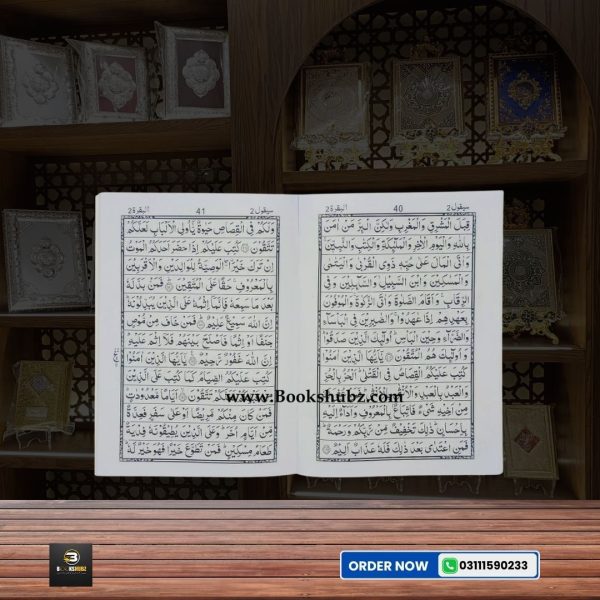 سيقول 2
40
البقرة 2
قِبَلَ الْمَشْرِقِ وَالْمَغْرِبِ وَلٰكِنَّ الْبِرَّ مَنْ اٰمَنَ
بِاللّٰهِ وَالْيَوْمِ الْاٰخِرِ وَالْمَلٰٓئِكَةِ وَالْكِتٰبِ وَالنَّبِيّٖنَ
وَاٰتَى الْمَالَ عَلٰى حُبِّهٖ ذَوِى الْقُرْبٰى وَالْيَتٰمٰى
وَالْمَسٰكِيْنَ وَابْنَ السَّبِيْلِ وَالسَّآئِلِيْنَ وَفِى
الرِّقَابِ وَاَقَامَ الصَّلٰوةَ وَاٰتَى الزَّكٰوةَ وَالْمُوْفُوْنَ
بِعَهْدِهِمْ اِذَا عٰهَدُوْا وَالصّٰبِرِيْنَ فِى الْبَاْسَآءِ
وَالضَّرَّآءِ وَحِيْنَ الْبَاْسِ اُولٰٓئِكَ الَّذِيْنَ صَدَقُوْا
وَاُولٰٓئِكَ هُمُ الْمُتَّقُوْنَ يٰٓاَيُّهَا الَّذِيْنَ اٰمَنُوْا
كُتِبَ عَلَيْكُمُ الْقِصَاصُ فِى الْقَتْلٰى اَلْحُرُّ بِالْحُرِّ
وَالْعَبْدُ بِالْعَبْدِ وَالْاُنْثٰى بِالْاُنْثٰى فَمَنْ عُفِىَ لَهٗ
مِنْ اَخِيْهِ شَىْءٌ فَاتِّبَاعٌ بِالْمَعْرُوْفِ وَاَدَآءٌ اِلَيْهِ
بِاِحْسَانٍ ذٰلِكَ تَخْفِيْفٌ مِّنْ رَّبِّكُمْ وَرَحْمَةٌ
فَمَنِ اعْتَدٰى بَعْدَ ذٰلِكَ فَلَهٗ عَذَابٌ اَلِيْمٌ
سيقول 2
41
البقرة 2
وَلَكُمْ فِى الْقِصَاصِ حَيٰوةٌ يّٰٓاُولِى الْاَلْبَابِ لَعَلَّكُمْ
تَتَّقُوْنَ كُتِبَ عَلَيْكُمْ اِذَا حَضَرَ اَحَدَكُمُ الْمَوْتُ
اِنْ تَرَكَ خَيْرًا الْوَصِيَّةُ لِلْوَالِدَيْنِ وَالْاَقْرَبِيْنَ
بِالْمَعْرُوْفِ حَقًّا عَلَى الْمُتَّقِيْنَ فَمَنْ بَدَّلَهٗ
بَعْدَ مَا سَمِعَهٗ فَاِنَّمَآ اِثْمُهٗ عَلَى الَّذِيْنَ يُبَدِّلُوْنَهٗ
اِنَّ اللّٰهَ سَمِيْعٌ عَلِيْمٌ فَمَنْ خَافَ مِنْ مُّوْصٍ
جَنَفًا اَوْ اِثْمًا فَاَصْلَحَ بَيْنَهُمْ فَلَآ اِثْمَ عَلَيْهِ
اِنَّ اللّٰهَ غَفُوْرٌ رَّحِيْمٌ يٰٓاَيُّهَا الَّذِيْنَ اٰمَنُوْا
كُتِبَ عَلَيْكُمُ الصِّيَامُ كَمَا كُتِبَ عَلَى الَّذِيْنَ
مِنْ قَبْلِكُمْ لَعَلَّكُمْ تَتَّقُوْنَ اَيَّامًا مَّعْدُوْدٰتٍ
فَمَنْ كَانَ مِنْكُمْ مَّرِيْضًا اَوْ عَلٰى سَفَرٍ فَعِدَّةٌ
مِّنْ اَيَّامٍ اُخَرَ وَعَلَى الَّذِيْنَ يُطِيْقُوْنَهٗ فِدْيَةٌ
طَعَامُ مِسْكِيْنٍ فَمَنْ تَطَوَّعَ خَيْرًا فَهُوَ خَيْرٌ لَّهٗ
www.Bookshubz.com
BOOKSHUBZ
ORDER NOW 03111590233